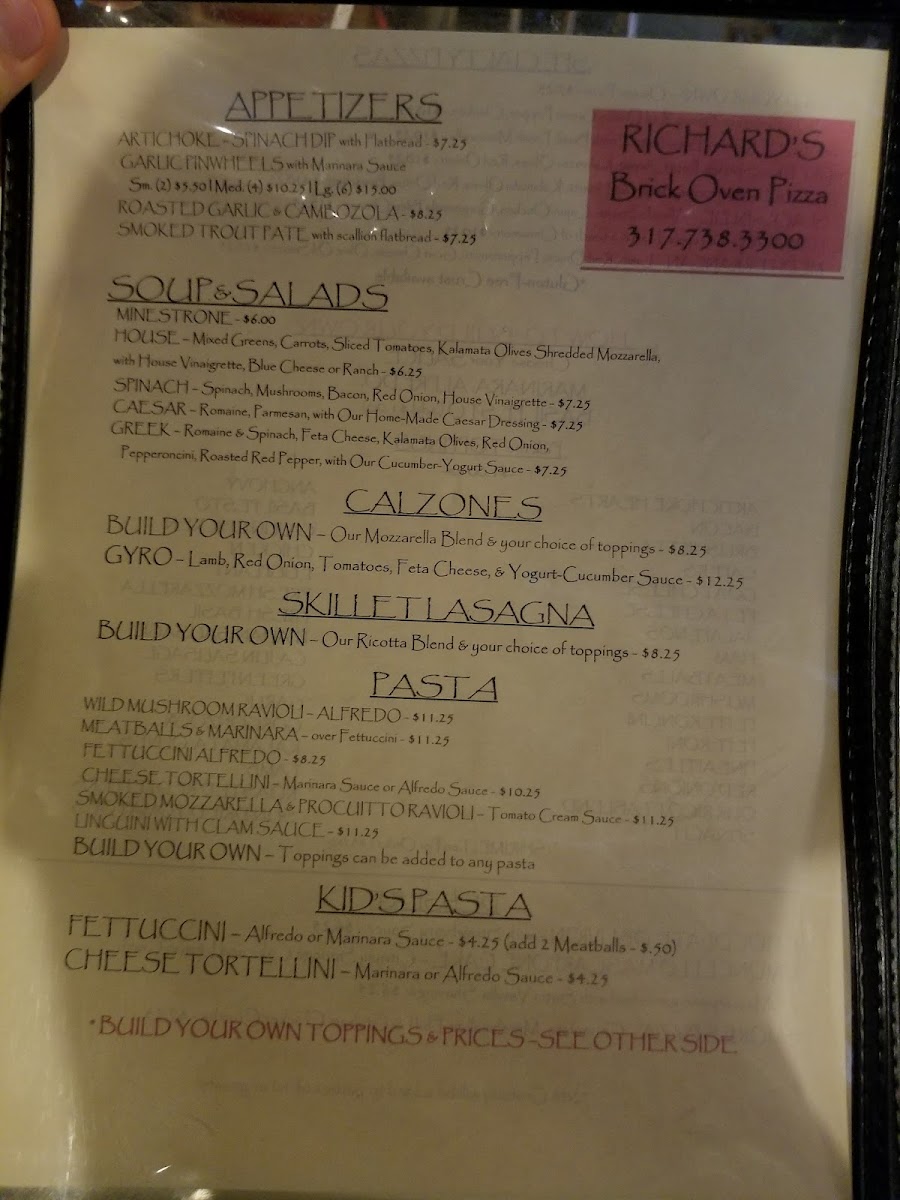 APPETIZERS
ARTICHOKE - SPINACH DIP with Flatbread - $7.25
GARLIC PINWHEELS with Marinara Sauce
Sm. (2) $5.50 | Med. (4) $10.25 | Lg. (6) $15.00
ROASTED GARLIC & CAMBOZOLA - $8.25
SMOKED TROUT PATE with scallion flatbread - $7.25
RICHARD'S
Brick Oven Pizza
317.738.3300
SOUP & SALADS
MINESTRONE - $6.00
HOUSE – Mixed Greens, Carrots, Sliced Tomatoes, Kalamata Olives Shredded Mozzarella,
with House Vinaigrette, Blue Cheese or Ranch - $6.25
SPINACH – Spinach, Mushrooms, Bacon, Red Onion, House Vinaigrette - $7.25
CAESAR – Romaine, Parmesan, with Our Home-Made Caesar Dressing - $7.25
GREEK – Romaine & Spinach, Feta Cheese, Kalamata Olives, Red Onion,
Pepperoncini, Roasted Red Pepper, with Our Cucumber-Yogurt Sauce - $7.25
CALZONES
BUILD YOUR OWN – Our Mozzarella Blend & your choice of toppings - $8.25
GYRO – Lamb, Red Onion, Tomatoes, Feta Cheese, & Yogurt-Cucumber Sauce - $12.25
SKILLET LASAGNA
BUILD YOUR OWN – Our Ricotta Blend & your choice of toppings - $8.25
PASTA
WILD MUSHROOM RAVIOLI – ALFREDO - $11.25
MEATBALLS & MARINARA – over Fettuccini - $11.25
FETTUCCINI ALFREDO - $8.25
CHEESE TORTELLINI – Marinara Sauce or Alfredo Sauce - $10.25
SMOKED MOZZARELLA & PROCUITTO RAVIOLI – Tomato Cream Sauce - $11.25
LINGUINI WITH CLAM SAUCE - $11.25
BUILD YOUR OWN – Toppings can be added to any pasta
KID'S PASTA
FETTUCCINI – Alfredo or Marinara Sauce - $4.25 (add 2 Meatballs - $.50)
CHEESE TORTELLINI – Marinara or Alfredo Sauce - $4.25
*BUILD YOUR OWN TOPPINGS & PRICES - SEE OTHER SIDE